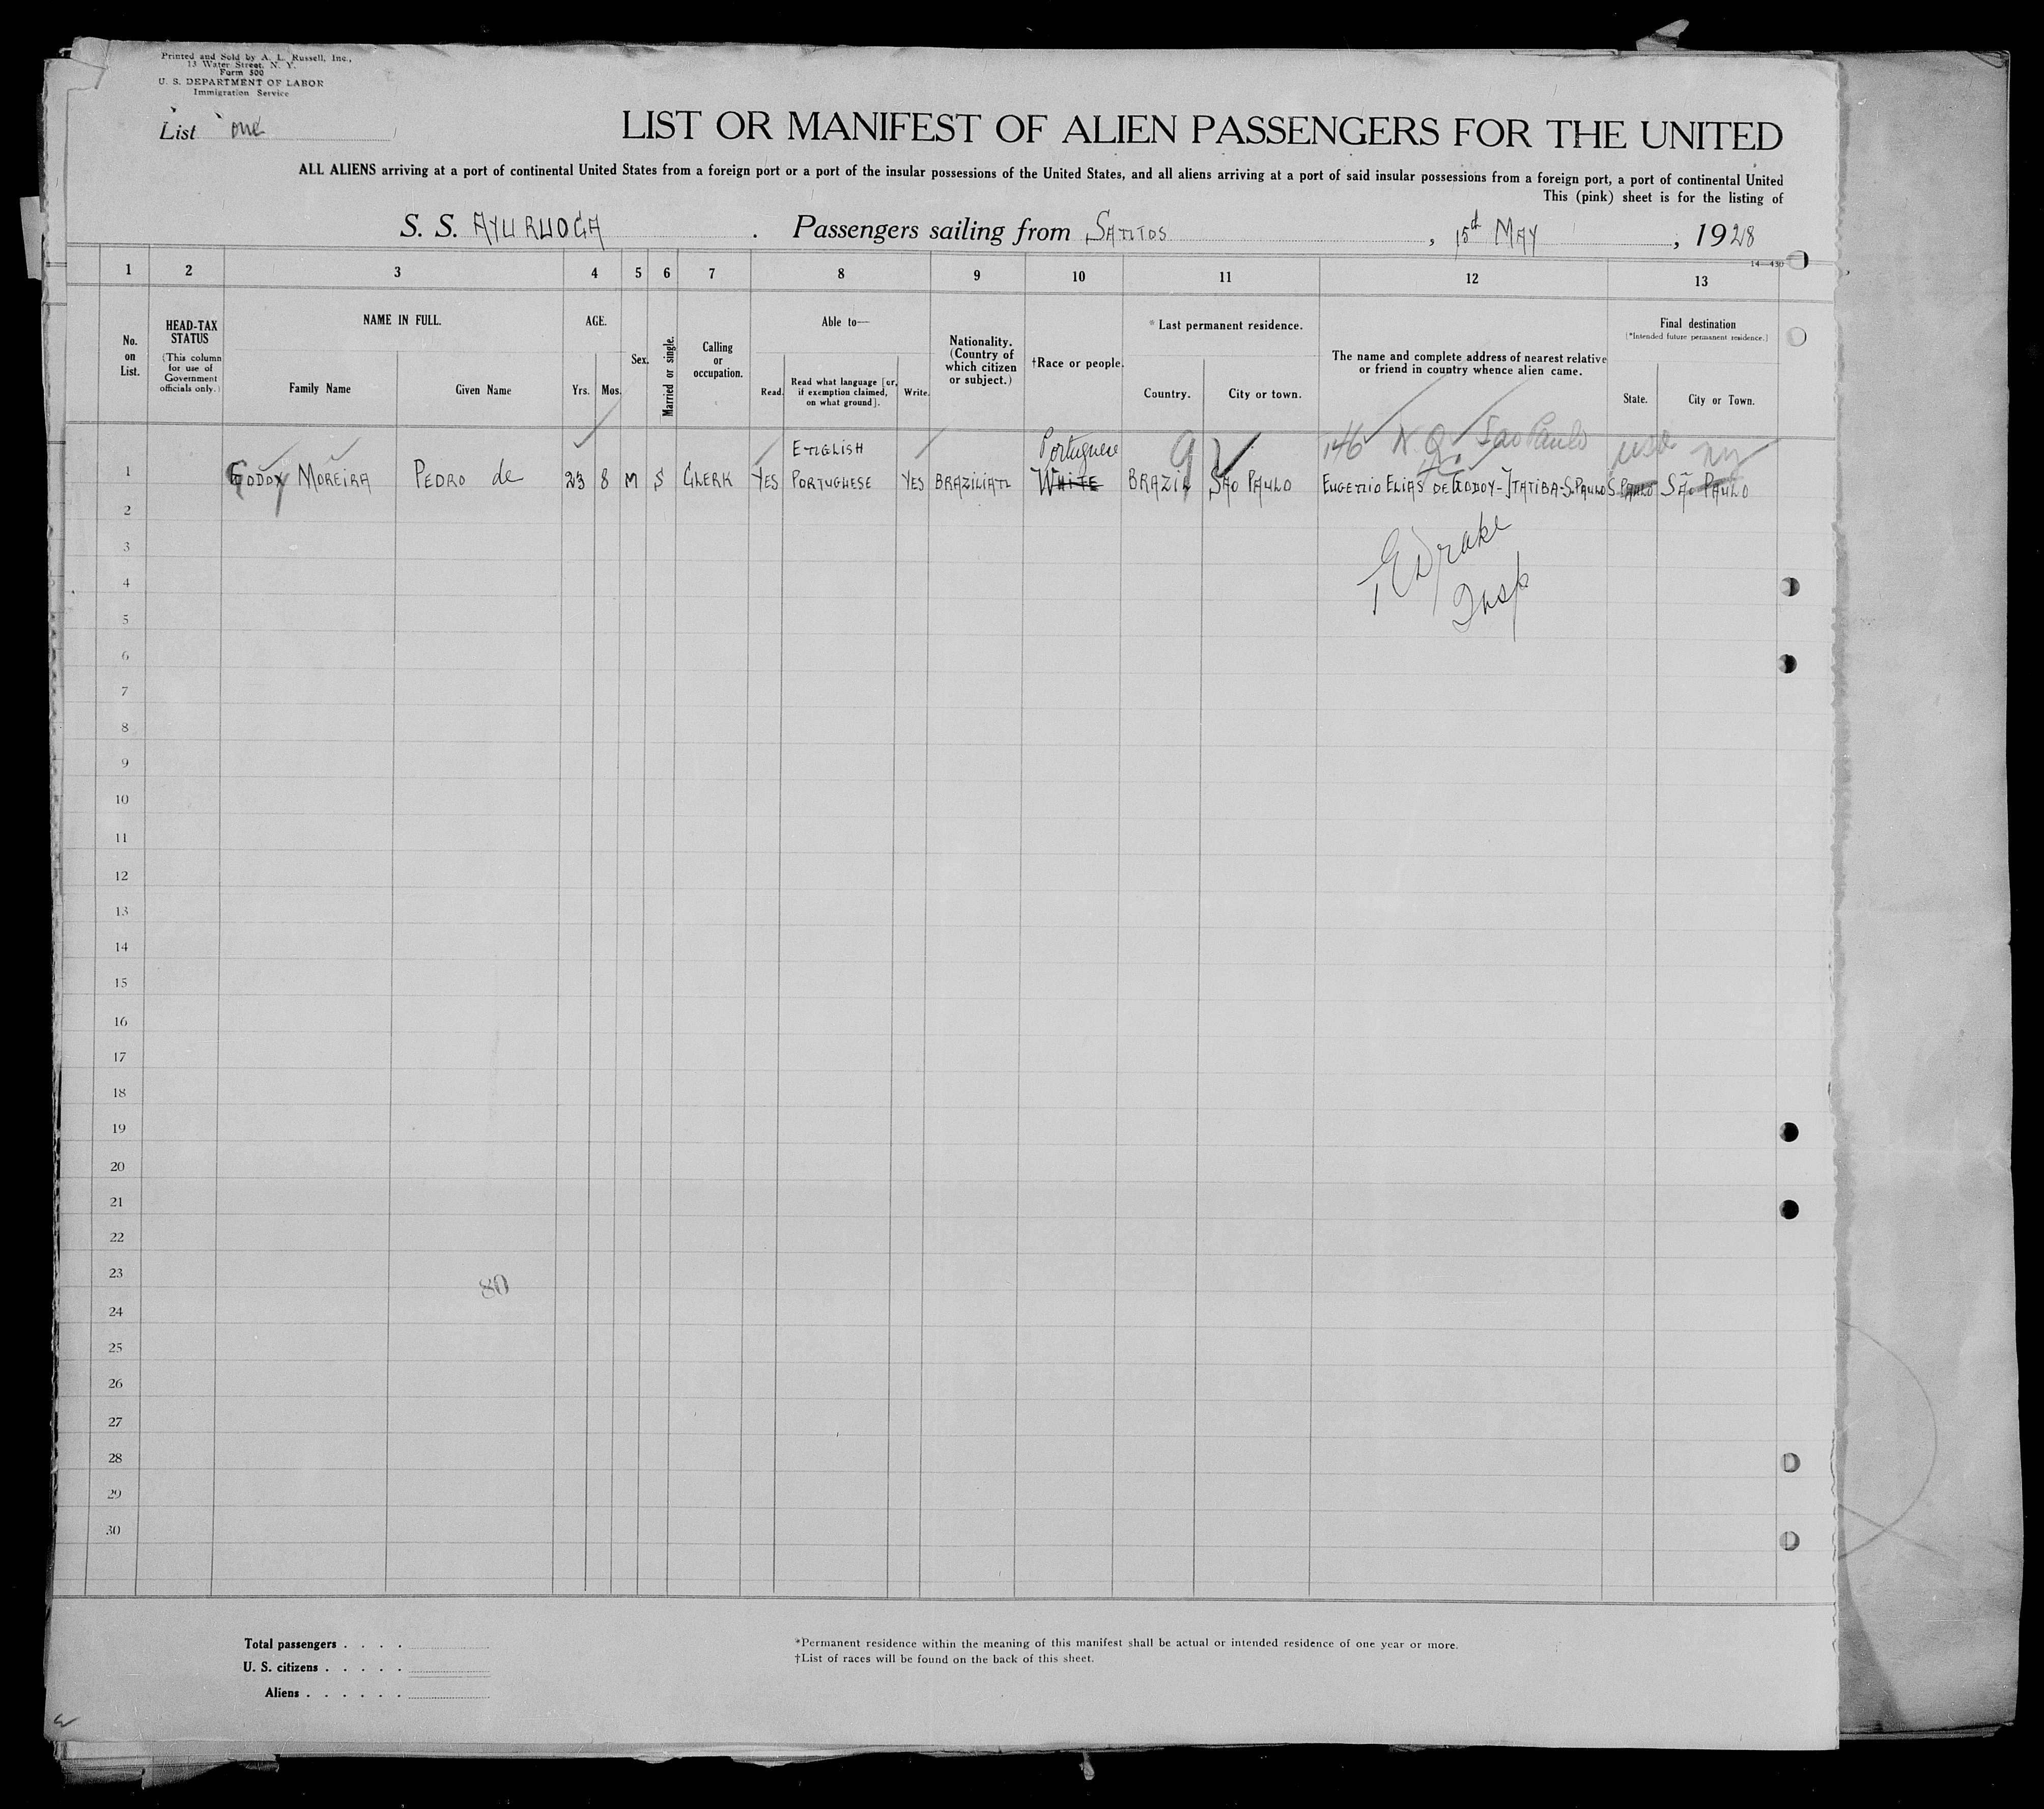 Printed and Sold by A. L. Russell, Inc.,
13 Water Street, N. Y.
Form 500
U. S. DEPARTMENT OF LABOR
Immigration Service
List one
LIST OR MANIFEST OF ALIEN PASSENGERS FOR THE UNITED
ALL ALIENS arriving at a port of continental United States from a foreign port or a port of the insular possessions of the United States, and all aliens arriving at a port of said insular possessions from a foreign port, a port of continental United
This (pink) sheet is for the listing of
S. S. AYURUOCA . Passengers sailing from SANTOS , 15th MAY , 1928
14—430
1 2 3 4 5 6 7 8 9 10 11 12 13
No. on List.
HEAD-TAX STATUS
(This column for use of Government officials only.)
NAME IN FULL.
Family Name Given Name
AGE.
Yrs. Mos.
Sex.
Married or single.
Calling or occupation.
Able to—
Read. Read what language [or, if exemption claimed, on what ground]. Write.
Nationality. (Country of which citizen or subject.)
†Race or people.
* Last permanent residence.
Country. City or town.
The name and complete address of nearest relative or friend in country whence alien came.
Final destination
(*Intended future permanent residence.)
State. City or Town.
ENGLISH Portuguese 146 N. Q. Sao Paulo USA NY
1 GODOY MOREIRA PEDRO de 23 8 M S CLERK YES PORTUGUESE YES BRAZILIAN WHITE BRAZIL SÃO PAULO EUGENIO ELIAS DE GODOY-ITATIBA-S.PAULO S PAULO SÃO PAULO
2
3
E Drake
4
Insp
5
6
7
8
9
10
11
12
13
14
15
16
17
18
19
20
21
22
23
80
24
25
26
27
28
29
30
Total passengers . . . .
U. S. citizens . . . . .
Aliens . . . . . .
*Permanent residence within the meaning of this manifest shall be actual or intended residence of one year or more.
†List of races will be found on the back of this sheet.